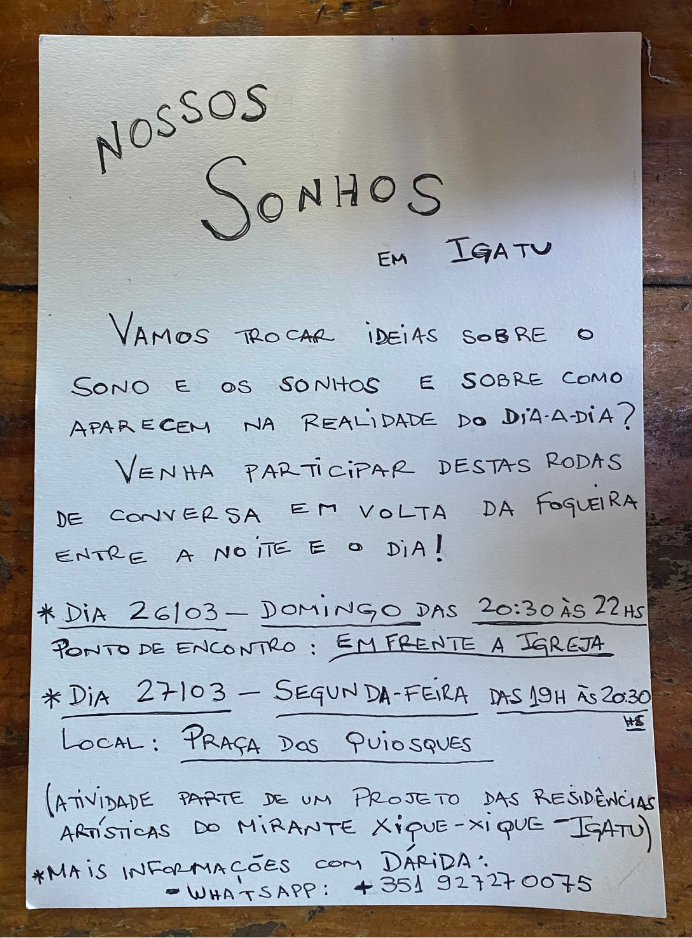 NOSSOS
SONHOS
EM IGATU
VAMOS TROCAR IDEIAS SOBRE O
SONO E OS SONHOS E SOBRE COMO
APARECEM NA REALIDADE DO DIA-A-DIA?
VENHA PARTICIPAR DESTAS RODAS
DE CONVERSA EM VOLTA DA FOGUEIRA
ENTRE A NOITE E O DIA!
* DIA 26/03 – DOMINGO DAS 20:30 ÀS 22HS
PONTO DE ENCONTRO: EM FRENTE A IGREJA
* DIA 27/03 – SEGUNDA-FEIRA DAS 19H ÀS 20:30
HS
LOCAL: PRAÇA DOS QUIOSQUES
(ATIVIDADE PARTE DE UM PROJETO DAS RESIDÊNCIAS
ARTÍSTICAS DO MIRANTE XIQUE-XIQUE – IGATU)
* MAIS INFORMAÇÕES COM DÁRIDA:
- WHATSAPP: +351 927270075